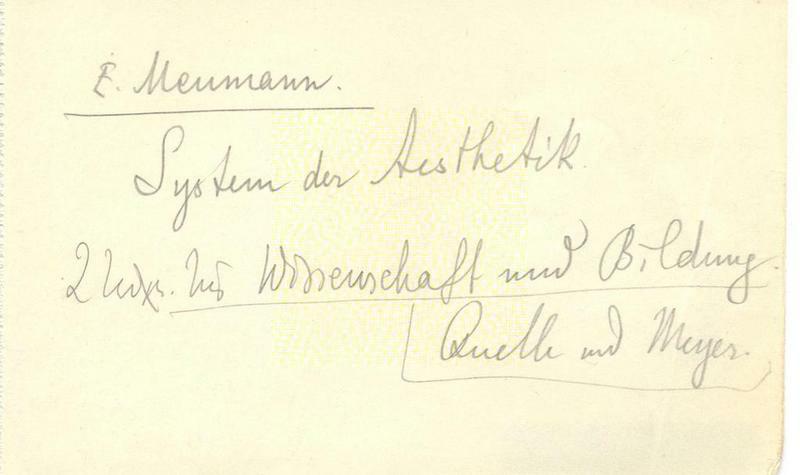 E. Meumann.
System der Aesthetik.
2 Wissenschaft und Bildung.
Quelle und Meyer.